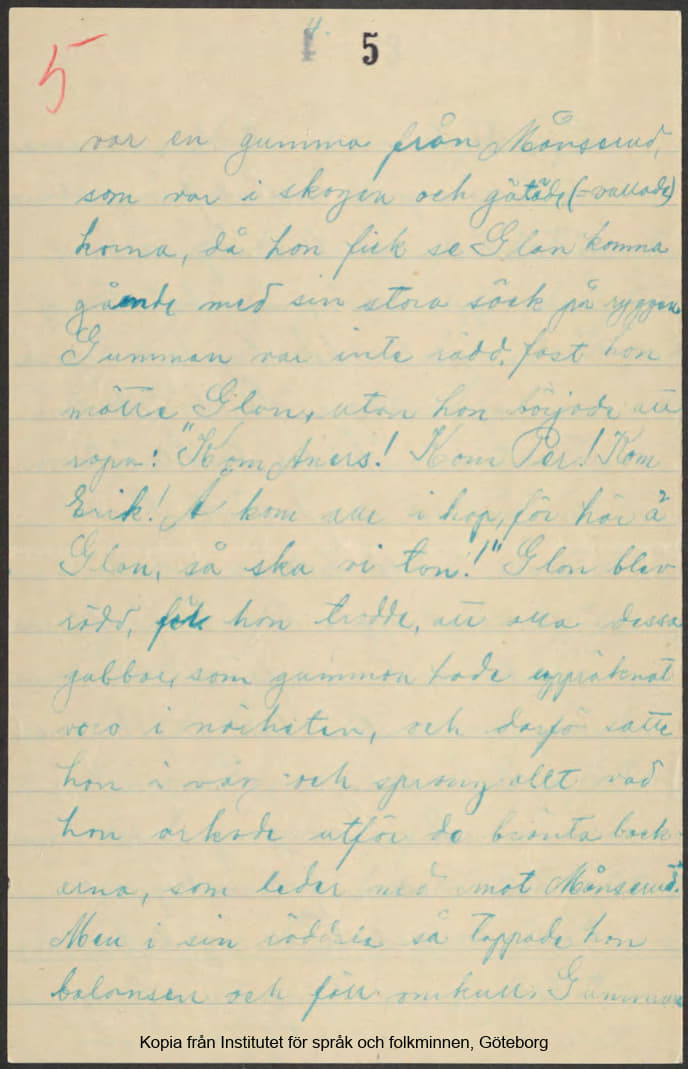 4.
5
5
var en gumma från Månserud,
som var i skogen och gätäde (=vallade)
korna, då hon fick se Glon komma
gående med sin stora säck på ryggen
Gumman var inte rädd, fast hon
mötte Glon, utan hon började att
ropa: "Kom Aners! Kom Per! Kom
Erik! Å kom alle i hop, för här ä
Glon, så ska vi ta'n!" Glon blev
rädd, för hon trodde, att alla dessa
gubbar, som gumman hade uppräknat
voro i närheten, och därför satte
hon i väg och sprang allt vad
hon orkade utför de branta back-
arna, som leder ned mot Månserud.
Men i sin rädsla så tappade hon
balansen och föll omkull. Gumman
Kopia från Institutet för språk och folkminnen, Göteborg